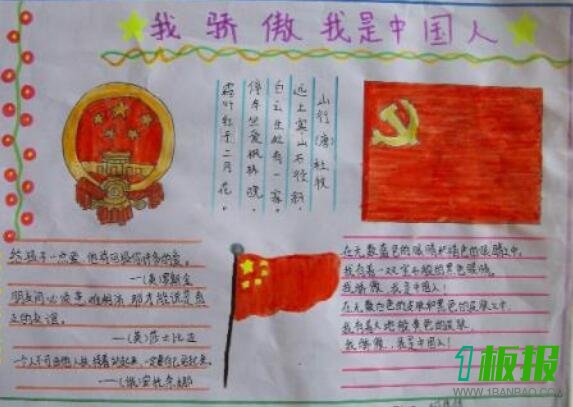 我骄傲我是中国人
山行(唐)杜牧
远上寒山石径斜,
白云生处有人家。
停车坐爱枫林晚,
霜叶红于二月花。
给孩子一点爱,他将回报你许多的爱。
——(英)罗斯金
朋友间必须患难相济,那才能说是真
正的友谊。
——(英)莎士比亚
一个人不可由他人扶持着站起来,一定要自己站起来。
在无数蓝色的眼睛和褐色的眼睛之中,
我有着一双宝石般的黑色眼睛。
我骄傲,我是中国人!
在无数白色的皮肤和黑色的皮肤之中,
我有着大地般黄色的皮肤,
我骄傲,我是中国人!
1板报
WWW.1BANBAO.COM